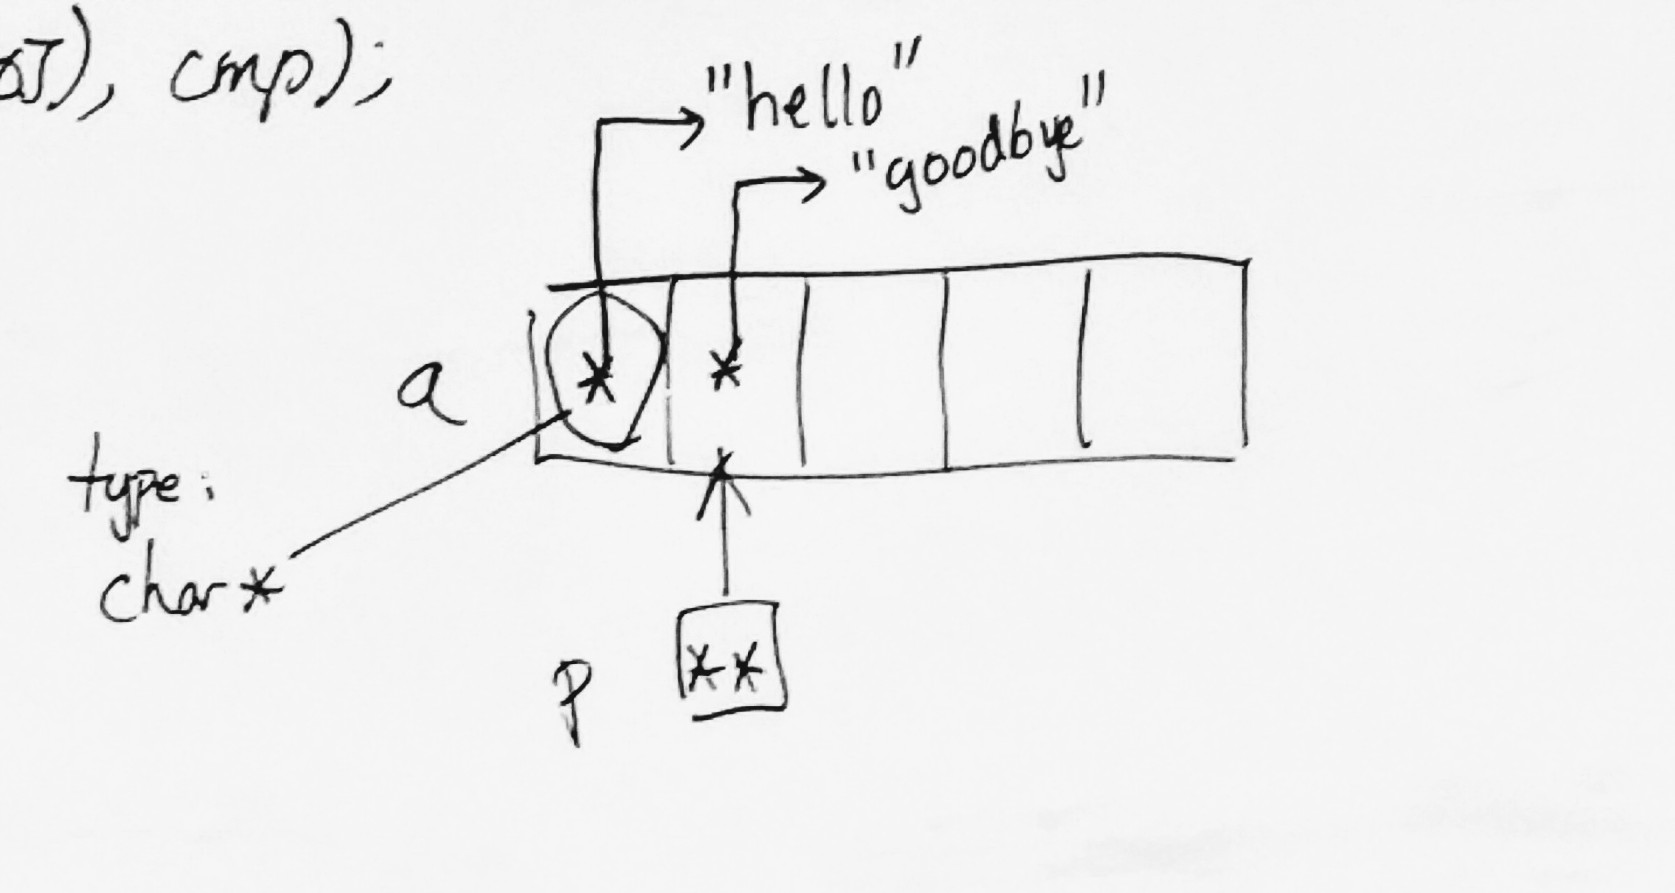 ), cmp);
"hello"
"goodbye"
* *
a
type:
char *
**
p